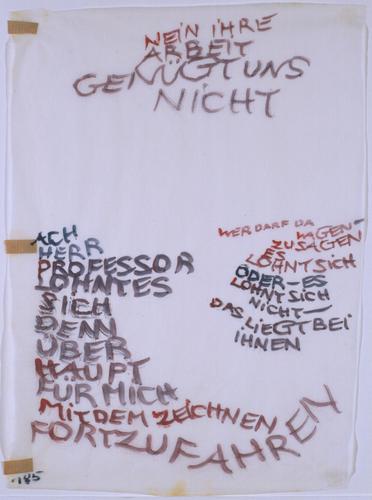 NEIN IHRE
ARBEIT
GENÜGT UNS
NICHT
ACH
HERR
PROFESSOR
LOHNT ES
SICH
DENN
ÜBER
HAUPT
FÜR MICH
MIT DEM ZEICHNEN
FORTZUFAHREN
WER DARF DA
WAGEN—
ZU SAGEN
ES
LOHNT SICH
ODER—ES
LOHNT SICH
NICHT—
DAS LIEGT BEI
IHNEN
185